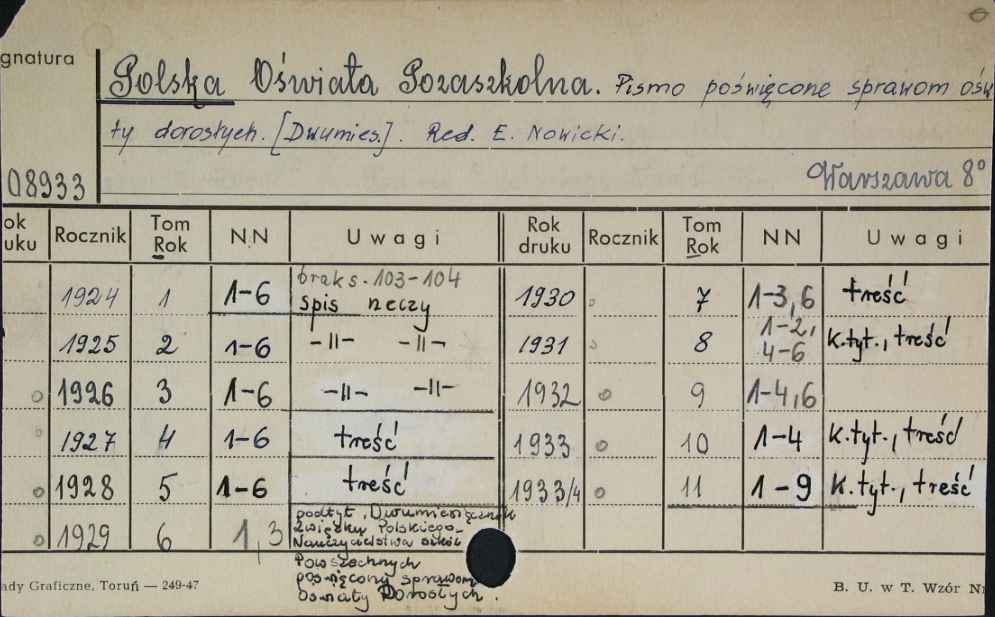 gnatura
Polska Oświata Pozaszkolna. Pismo poświęcone sprawom ośw
ty dorosłych. [Dwumies.]. Red. E. Nowicki.
08933
Warszawa 8°
ok uku Rocznik Tom Rok NN Uwagi Rok druku Rocznik Tom Rok NN Uwagi
1924 1 1-6 brak s. 103-104 spis rzeczy 1930 7 1-3,6 treść
1925 2 1-6 -11- -11- 1931 8 1-2, 4-6 K.tyt., treść
1926 3 1-6 -11- -11- 1932 9 1-4,6
1927 4 1-6 treść 1933 10 1-4 K.tyt., treść
1928 5 1-6 treść 1933/4 11 1-9 K.tyt., treść
1929 6 1,3 podtyt. Dwumiesięcznik
Związku Polskiego
Nauczycielstwa szkół
Powszechnych
poświęcony sprawom
Oświaty Dorosłych.
ady Graficzne, Toruń — 249-47
B. U. w T. Wzór N